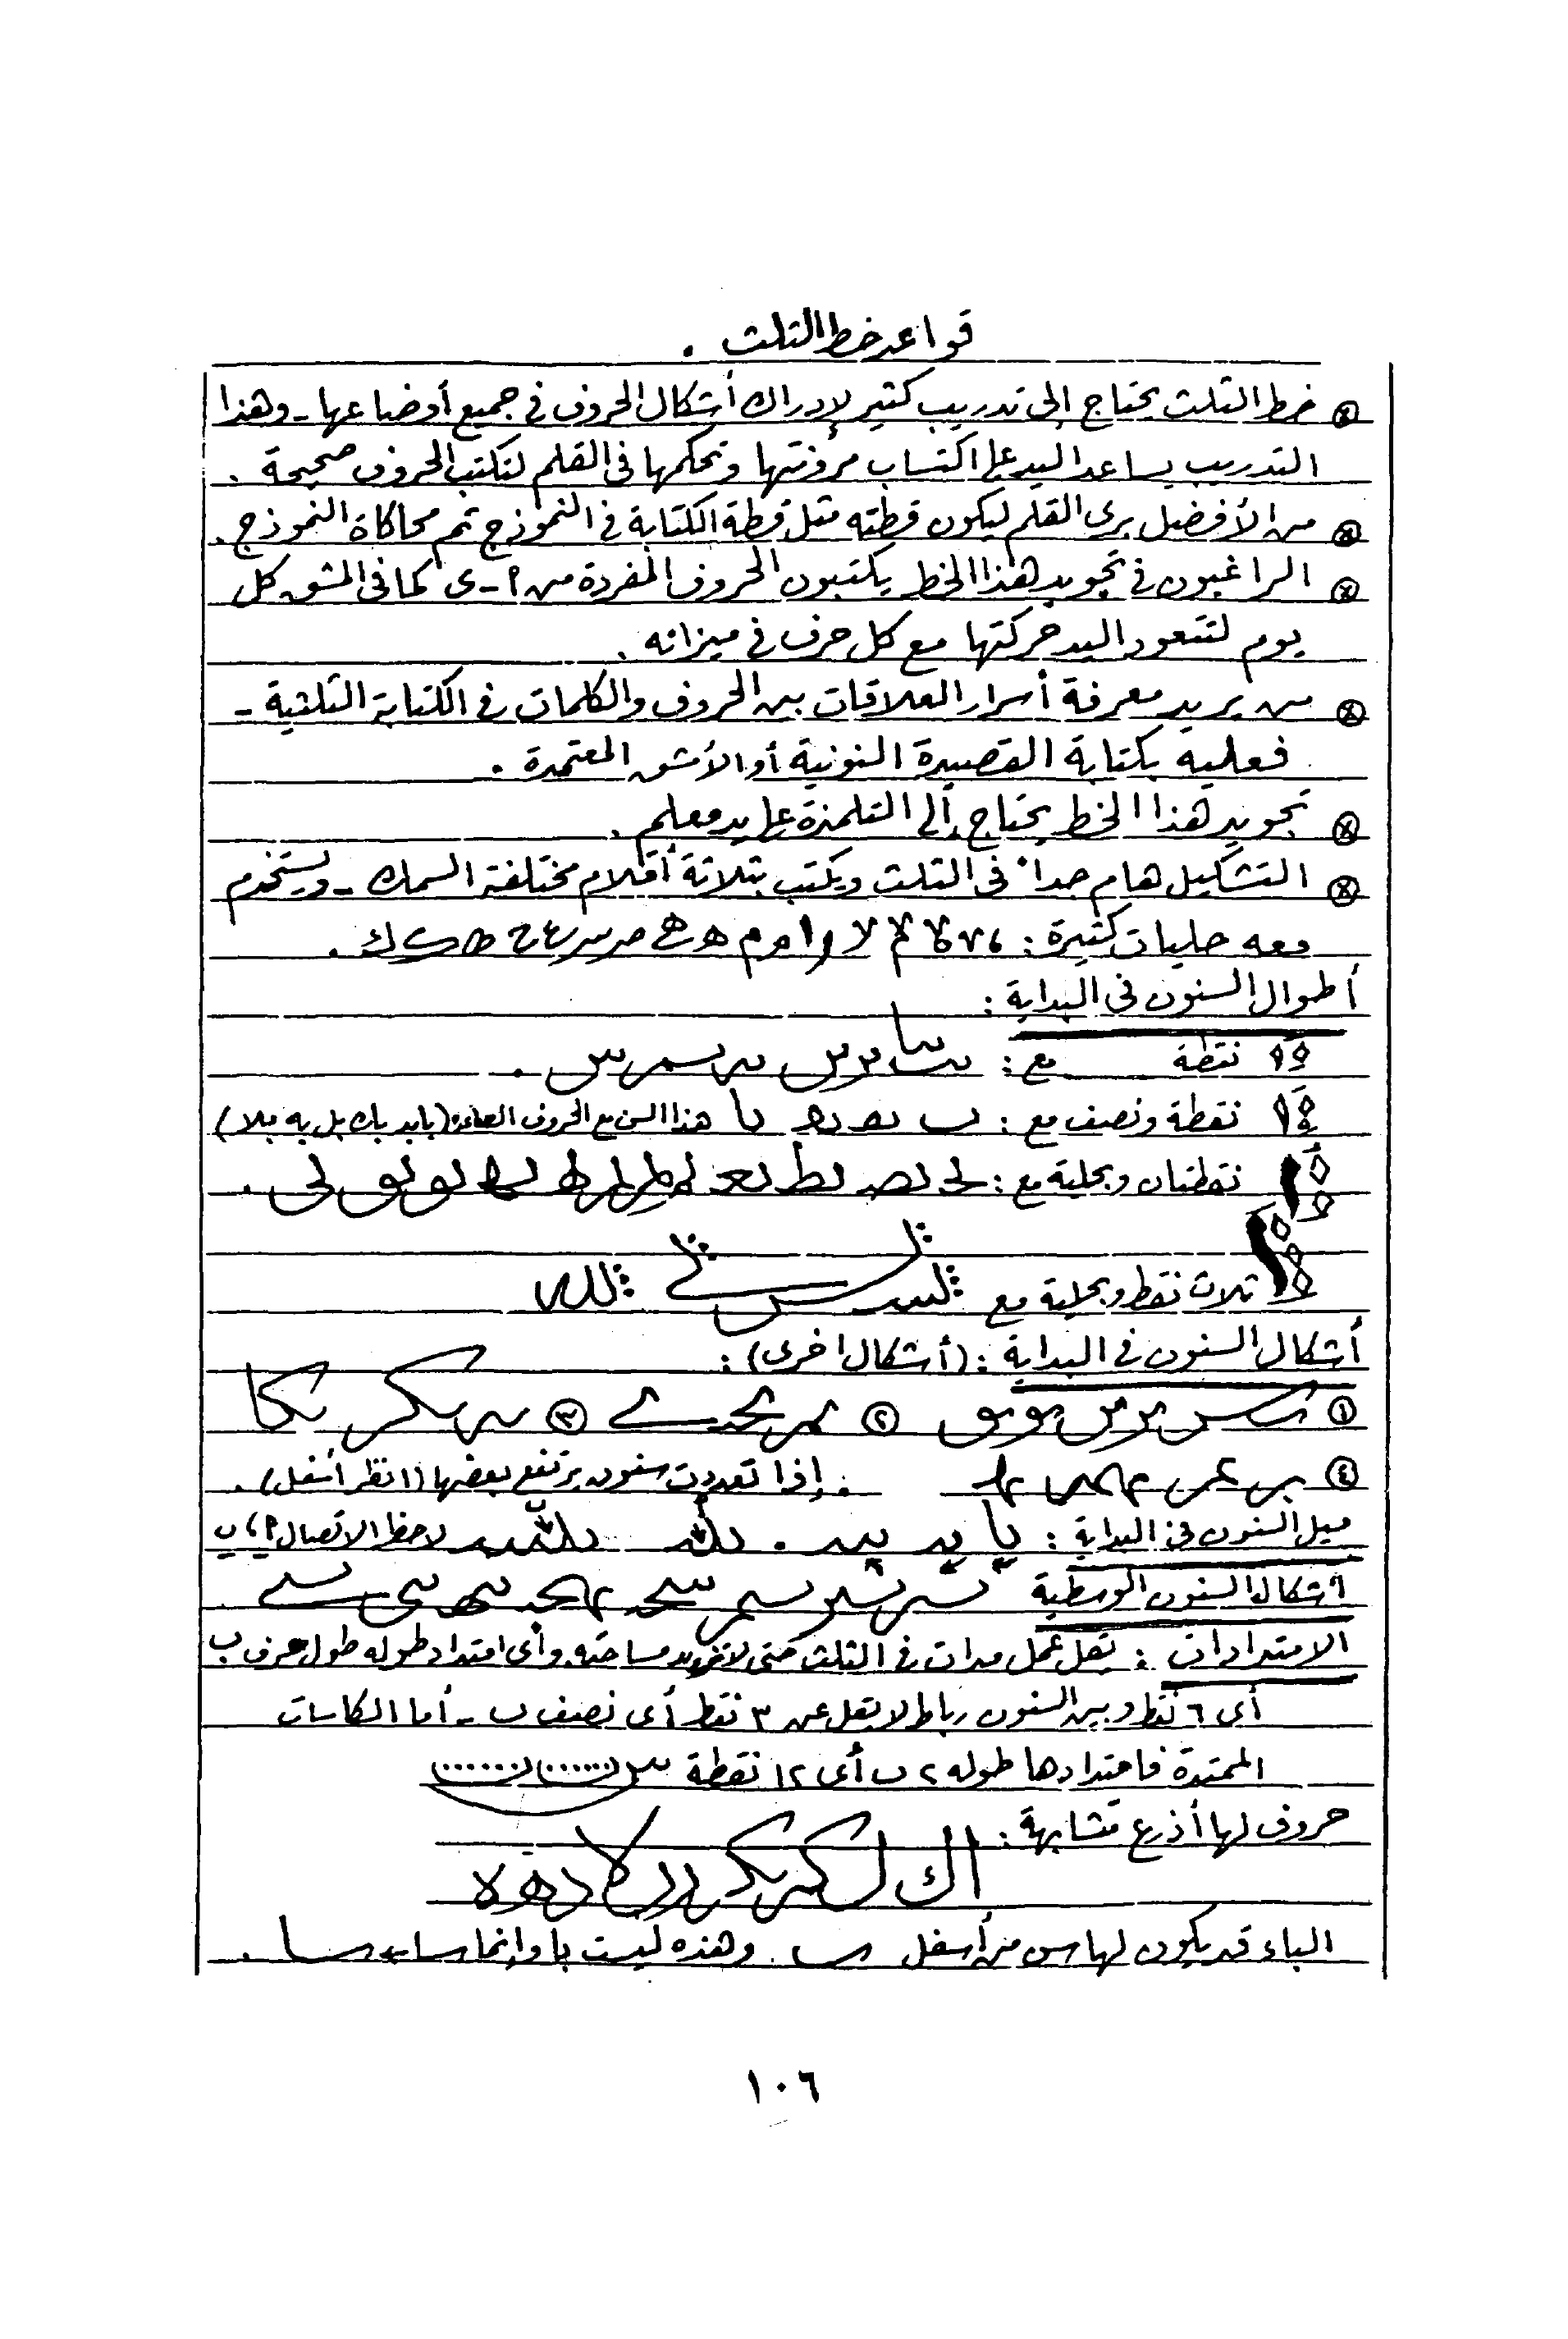 قواعد خط الثلث .
خط الثلث يحتاج إلى تدريب كثير لإدراك أشكال الحروف في جميع أوضاعها - وهذا
التدريب يساعد اليد على اكتساب مرونتها وتحكمها في القلم لتكتب الحروف صحيحة .
من الأفضل برى القلم ليكون قطته مثل قطة الكتابة في النموذج ثم محاكاة النموذج .
الراغبون في تجويد هذا الخط يكتبون الحروف المفردة من ا - ى كما في المشق كل
يوم لتتعود اليد حركتها مع كل حرف في ميزانه .
من يريد معرفة أسرار العلاقات بين الحروف والكلمات في الكتابة الثلثية -
فعليه بكتابة القصيدة النونية أو الأمشق المعتمدة .
تجويد هذا الخط يحتاج إلى التلمذة على يد معلم .
التشكيل هام جداً في الثلث ويكتب بثلاثة أقلام مختلفة السمك - ويستخدم
معه حليات كثيرة :
أطوال السنون في البداية :
نقطة مع :
نقطة ونصف مع : هذا السن مع الحروف الصاعدة (با بد بك بل به بلا)
نقطتان وبحلية مع :
ثلاث نقط وبحلية مع
أشكال السنون في البداية : (أشكال اخرى) :
١ ٢ ٣
٤ . إذا تعددت سنون يرتفع بعضها (انظر أسفل) .
ميل السنون في البداية : لاحظ الاتصال
أشكال السنون الوسطية
الامتدادات : يقل عمل مدات في الثلث حتى لا تزيد مساحته وأى امتداد طوله طول حرف ب
أى ٦ نقط وبين السنون رباط لا يقل عن ٣ نقط أى نصف ب - أما الكاسات
الممتدة فامتدادها طوله ٢ ب أى ١٢ نقطة
حروف لها أذرع متشابهة :
الباء قد يكون لها سن من أسفل وهذه ليست با وإنما
١٠٦